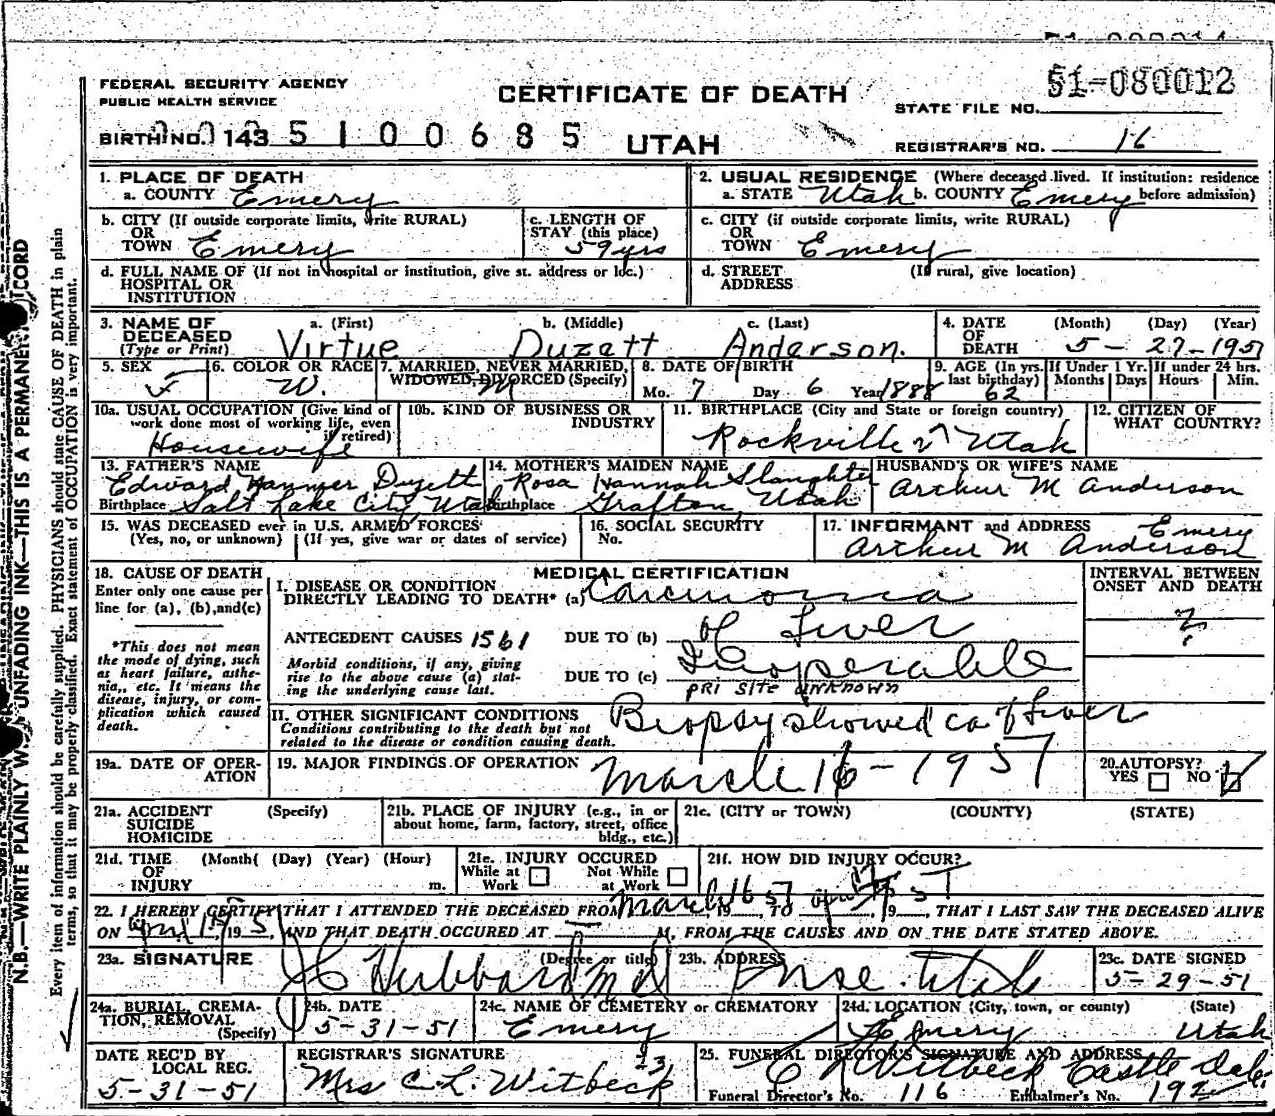 FEDERAL SECURITY AGENCY
PUBLIC HEALTH SERVICE
CERTIFICATE OF DEATH
UTAH
STATE FILE NO. 51-080012
BIRTH NO. 143 5 1 0 0 6 8 5
REGISTRAR'S NO. 16
N.B.—WRITE PLAINLY WITH UNFADING INK—THIS IS A PERMANENT RECORD
Every item of information should be carefully supplied. PHYSICIANS should state CAUSE OF DEATH in plain
terms, so that it may be properly classified. Exact statement of OCCUPATION is very important.
1. PLACE OF DEATH
a. COUNTY Emery
2. USUAL RESIDENCE (Where deceased lived. If institution: residence
a. STATE Utah b. COUNTY Emery before admission)
b. CITY (If outside corporate limits, write RURAL)
OR
TOWN Emery
c. LENGTH OF
STAY (this place)
59 yrs
c. CITY (if outside corporate limits, write RURAL)
OR
TOWN Emery
d. FULL NAME OF (If not in hospital or institution, give st. address or loc.)
HOSPITAL OR
INSTITUTION
d. STREET (If rural, give location)
ADDRESS
3. NAME OF DECEASED
(Type or Print)
a. (First) b. (Middle) c. (Last)
Virtue Duzett Anderson.
4. DATE OF DEATH
(Month) (Day) (Year)
5-27-1951
5. SEX
F
6. COLOR OR RACE
W.
7. MARRIED, NEVER MARRIED,
WIDOWED, DIVORCED (Specify)
M
8. DATE OF BIRTH
Mo. 7 Day 6 Year 1888
9. AGE (In yrs. last birthday)
62
If Under 1 Yr.
Months Days
If under 24 hrs.
Hours Min.
10a. USUAL OCCUPATION (Give kind of
work done most of working life, even
if retired)
Housewife
10b. KIND OF BUSINESS OR
INDUSTRY
11. BIRTHPLACE (City and State or foreign country)
Rockville Utah
12. CITIZEN OF
WHAT COUNTRY?
13. FATHER'S NAME
Edward Hanmer Duzett
Birthplace Salt Lake City Utah
14. MOTHER'S MAIDEN NAME
Rosa Hannah Slaughter
Birthplace Grafton, Utah
HUSBAND'S OR WIFE'S NAME
Arthur M Anderson
15. WAS DECEASED ever in U.S. ARMED FORCES
(Yes, no, or unknown) (If yes, give war or dates of service)
16. SOCIAL SECURITY
No.
17. INFORMANT and ADDRESS Emery
Arthur M Anderson
18. CAUSE OF DEATH
Enter only one cause per
line for (a), (b), and (c)
*This does not mean
the mode of dying, such
as heart failure, asthe-
nia, etc. It means the
disease, injury, or com-
plication which caused
death.
MEDICAL CERTIFICATION
I. DISEASE OR CONDITION
DIRECTLY LEADING TO DEATH* (a) Carcinoma
ANTECEDENT CAUSES 1561 DUE TO (b) of Liver
Morbid conditions, if any, giving
rise to the above cause (a) stat-
ing the underlying cause last.
DUE TO (c) Inoperable
PRI SITE UNKNOWN
INTERVAL BETWEEN
ONSET AND DEATH
?
II. OTHER SIGNIFICANT CONDITIONS
Conditions contributing to the death but not
related to the disease or condition causing death.
Biopsy showed ca of Liver
19a. DATE OF OPER-
ATION
19. MAJOR FINDINGS OF OPERATION
March 16-1951
20. AUTOPSY?
YES NO
21a. ACCIDENT (Specify)
SUICIDE
HOMICIDE
21b. PLACE OF INJURY (e.g., in or
about home, farm, factory, street, office
bldg., etc.)
21c. (CITY or TOWN) (COUNTY) (STATE)
21d. TIME (Month) (Day) (Year) (Hour)
OF
INJURY m.
21e. INJURY OCCURED
While at Work Not While at Work
21f. HOW DID INJURY OCCUR?
22. I HEREBY CERTIFY THAT I ATTENDED THE DECEASED FROM March 16 51, 19, TO April 17, 19 51, THAT I LAST SAW THE DECEASED ALIVE
ON April 17, 19 51, AND THAT DEATH OCCURED AT M, FROM THE CAUSES AND ON THE DATE STATED ABOVE.
23a. SIGNATURE (Degree or title)
Hubbard MD
23b. ADDRESS
Price. Utah
23c. DATE SIGNED
5-29-51
24a. BURIAL, CREMA-
TION, REMOVAL
(Specify)
24b. DATE
5-31-51
24c. NAME OF CEMETERY or CREMATORY
Emery
24d. LOCATION (City, town, or county) (State)
Emery Utah
DATE REC'D BY
LOCAL REG.
5-31-51
REGISTRAR'S SIGNATURE
Mrs C. L. Witbeck
25. FUNERAL DIRECTOR'S SIGNATURE AND ADDRESS
C L Witbeck Castle Dale
Funeral Director's No. 116 Embalmer's No. 192